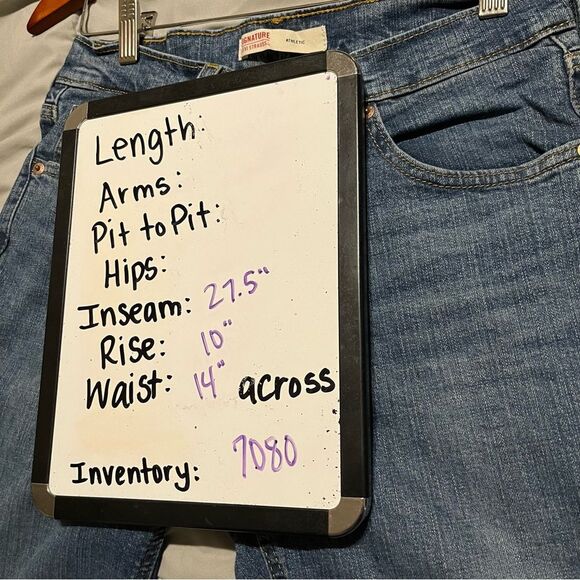 SIGNATURE
LEVI STRAUSS
ATHLETIC
Length:
Arms:
Pit to Pit:
Hips:
Inseam: 27.5"
Rise: 10"
Waist: 14" across
Inventory: 7080